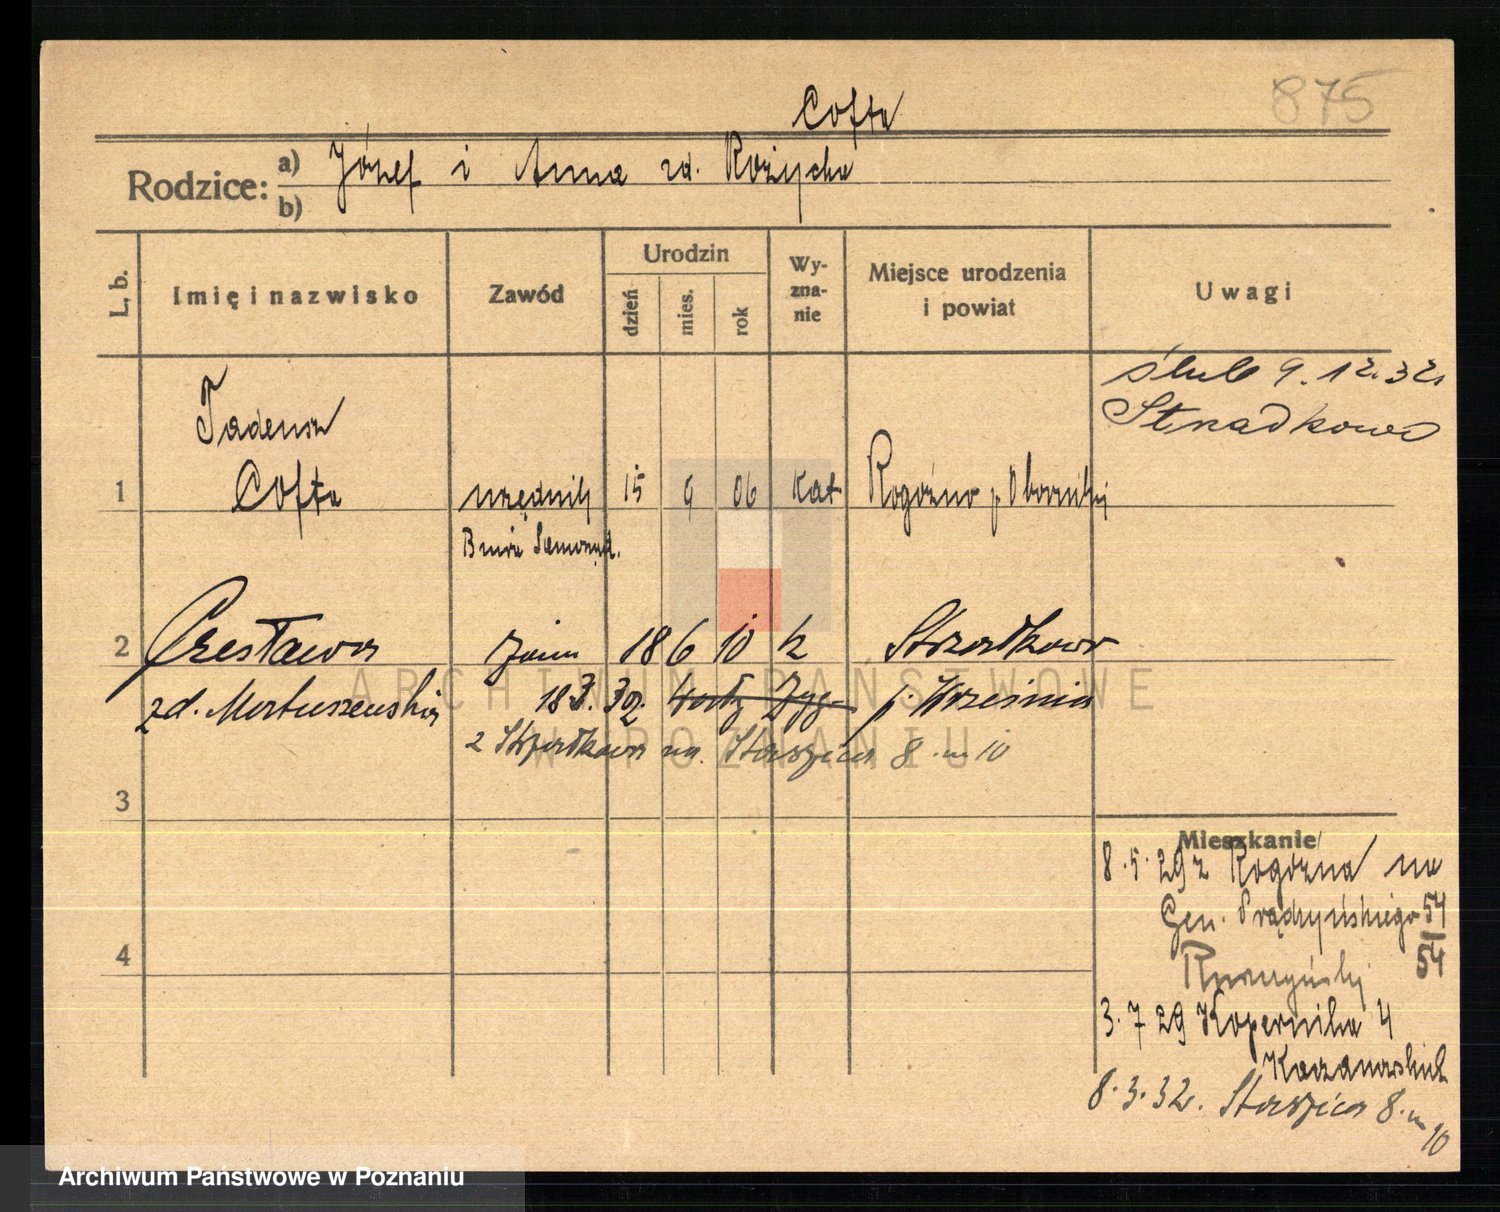 875
Cofta
Rodzice: a) Józef i Anna zd. Różycka
b)
L. b.
Imię i nazwisko
Zawód
Urodzin
dzień
mies.
rok
Wy-
zna-
nie
Miejsce urodzenia
i powiat
Uwagi
ślub 9. 12. 32
Strzałkowo
Tadeusz
1 Cofta urzędnik 15 9 06 kat Rogoźno p. Obornicki
Biura Samorząd.
2 Czesława żona 18 6 10 k Strzałkowo
zd. Matuszewska 18 3. 32. p. Września
z Strzałkowa na Staszica 8 m 10
3
4
Mieszkanie
8. 5. 29 z Rogoźna na
Gen. Prądzyńskiego 54
54
3. 7 29 Kopernika 4
8. 3. 32. Staszica 8. m
10
ARCHIWUM PAŃSTWOWE
W POZNANIU
Archiwum Państwowe w Poznaniu